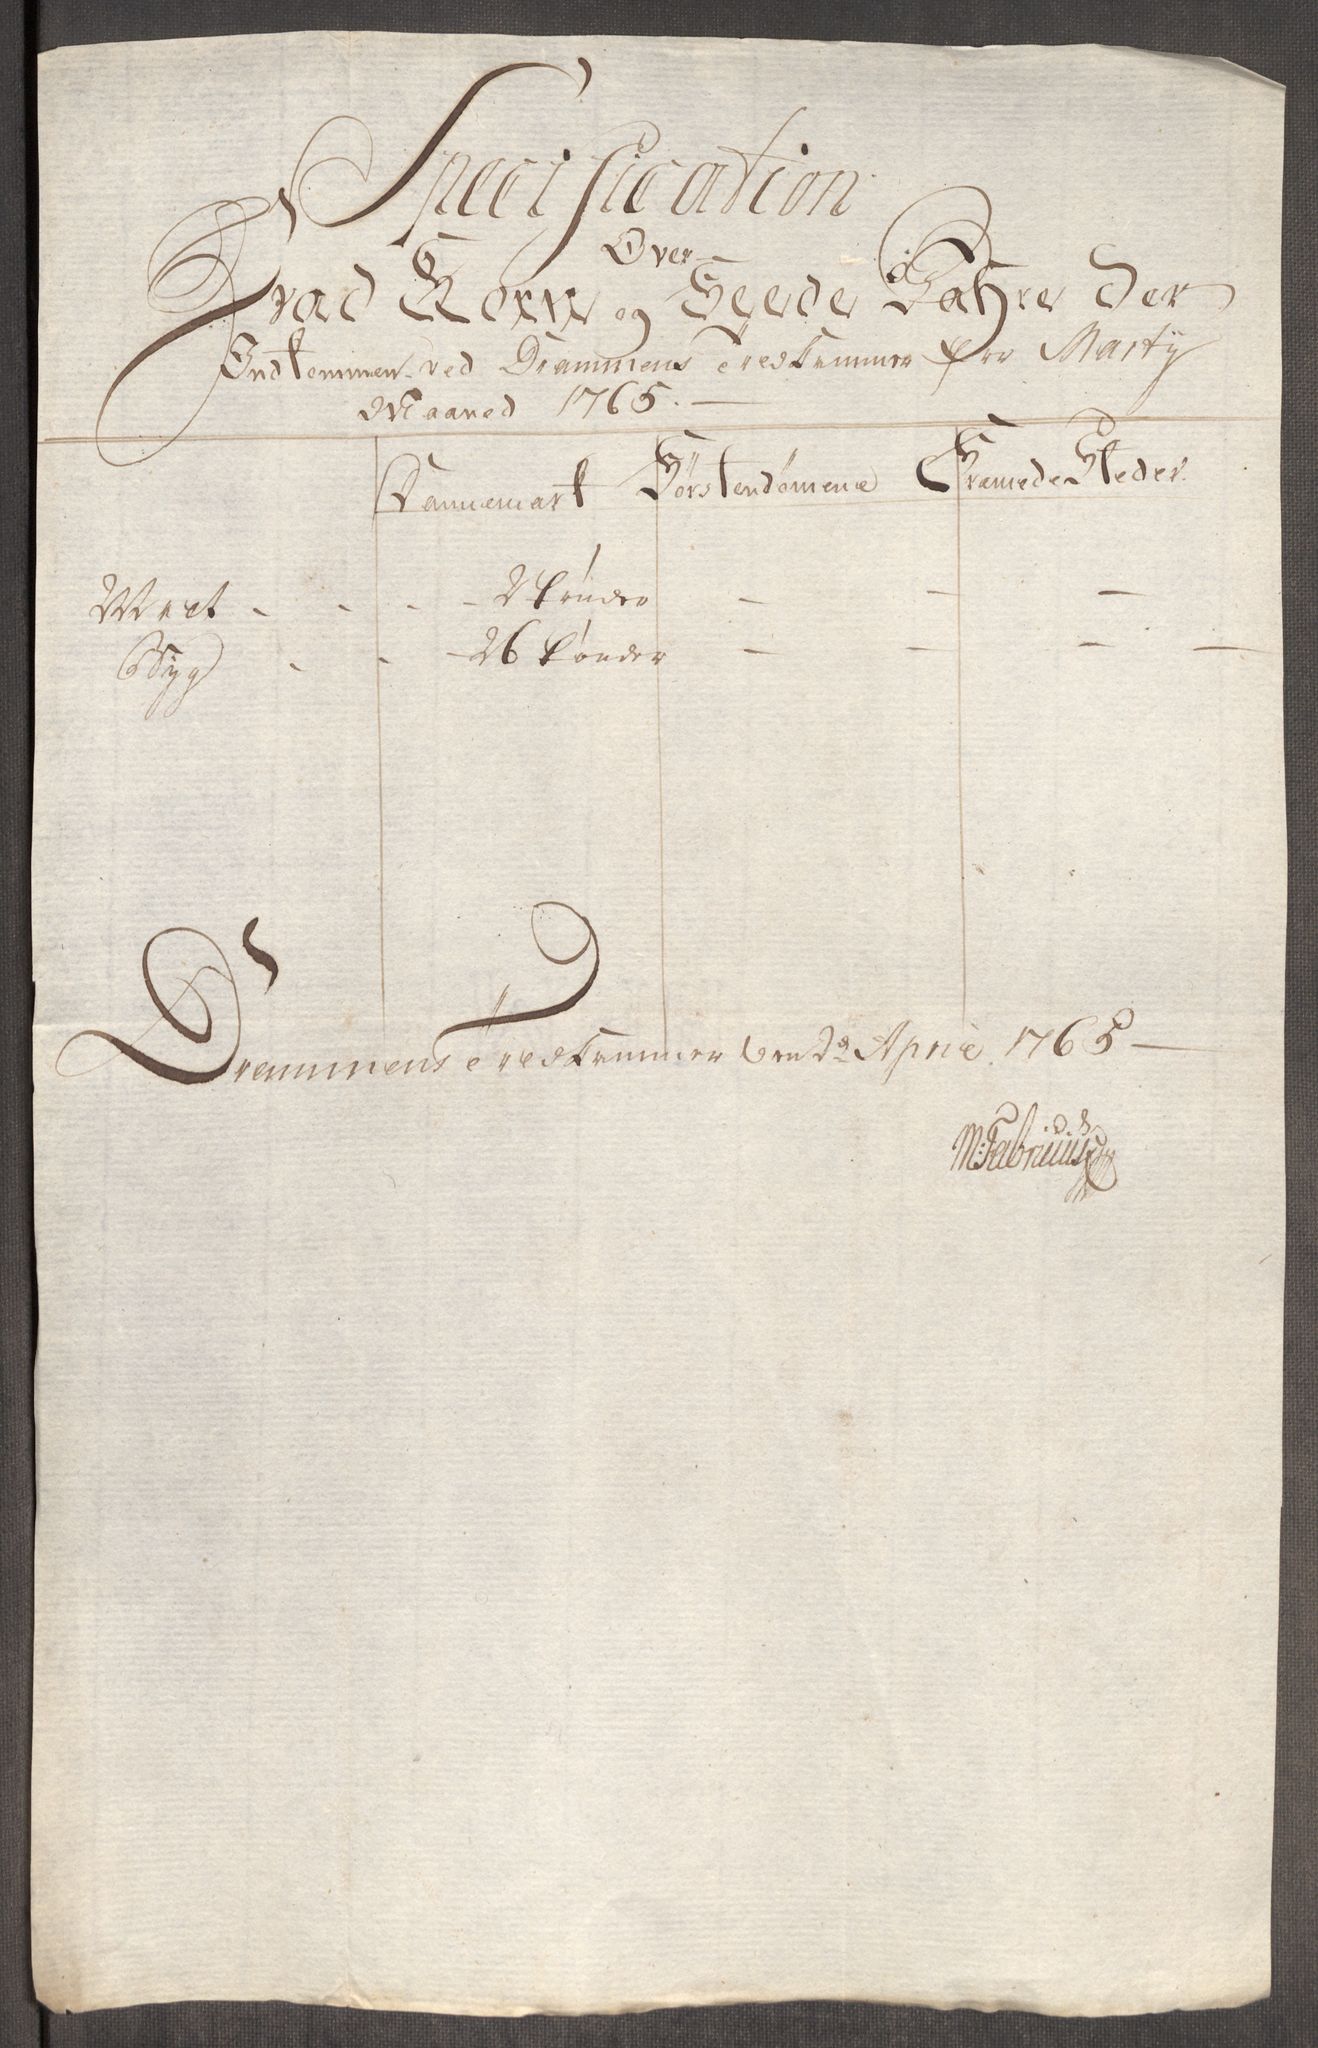 Specification
Over
Hvad Korn og Feede Vahre der
Indkommen ved Drammens Toldkammer for Marty
Maaned 1765. —
Dannemark Förstendömene Fremede Steder.
Malt - - - - 2 tönder — — —
Byg - - - 26 tönder — — — —
Drammens Toldkammer den 2d April 1765 —
M: Fabritius